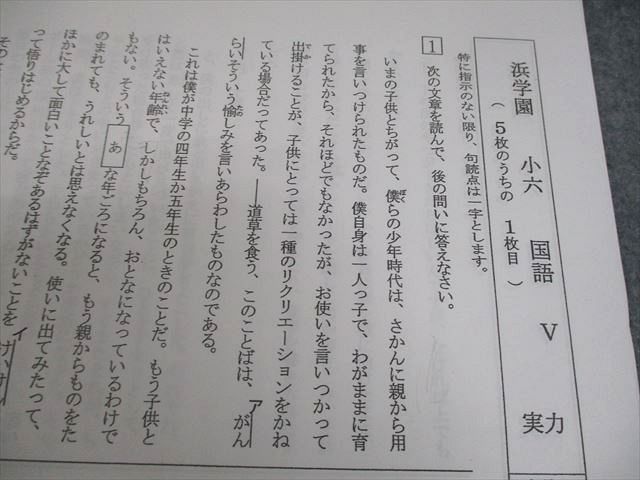 浜学園 小六 国語 V 実力
( 5枚のうちの 1枚目 )
特に指示のない限り、句読点は一字とします。
1 次の文章を読んで、後の問いに答えなさい。
いまの子供とちがって、僕らの少年時代は、さかんに親から用
事を言いつけられたものだ。僕自身は一人っ子で、わがままに育
てられたから、それほどでもなかったが、お使いを言いつかって
出掛けることが、子供にとっては一種のリクリエーションをかね
ている場合だってあった。――道草を食う、このことばは、ア がん
らい、そういう愉しみを言いあらわしたものなのである。
これは僕が中学の四年生か五年生のときのことだ。もう子供と
はいえない年齢で、しかしもちろん、おとなになっているわけで
もない。そういう あ な年ごろになると、もう親からものをた
のまれても、うれしいとは思えなくなる。使いに出てみたって、
ほかに大して面白いことなぞあるはずがないことを イ けいけ
って悟りはじめるからだ。